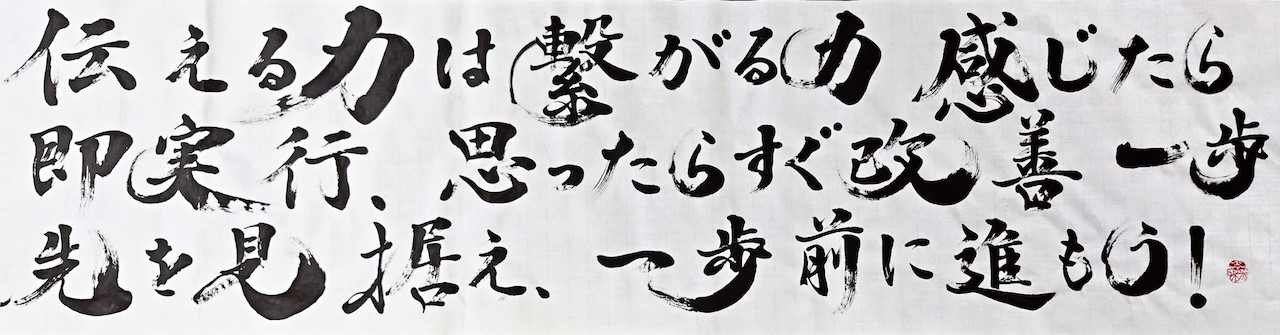 伝える力は繋がる力 感じたら
即実行、思ったらすぐ改善 一歩
先を見据え、一歩前に進もう!